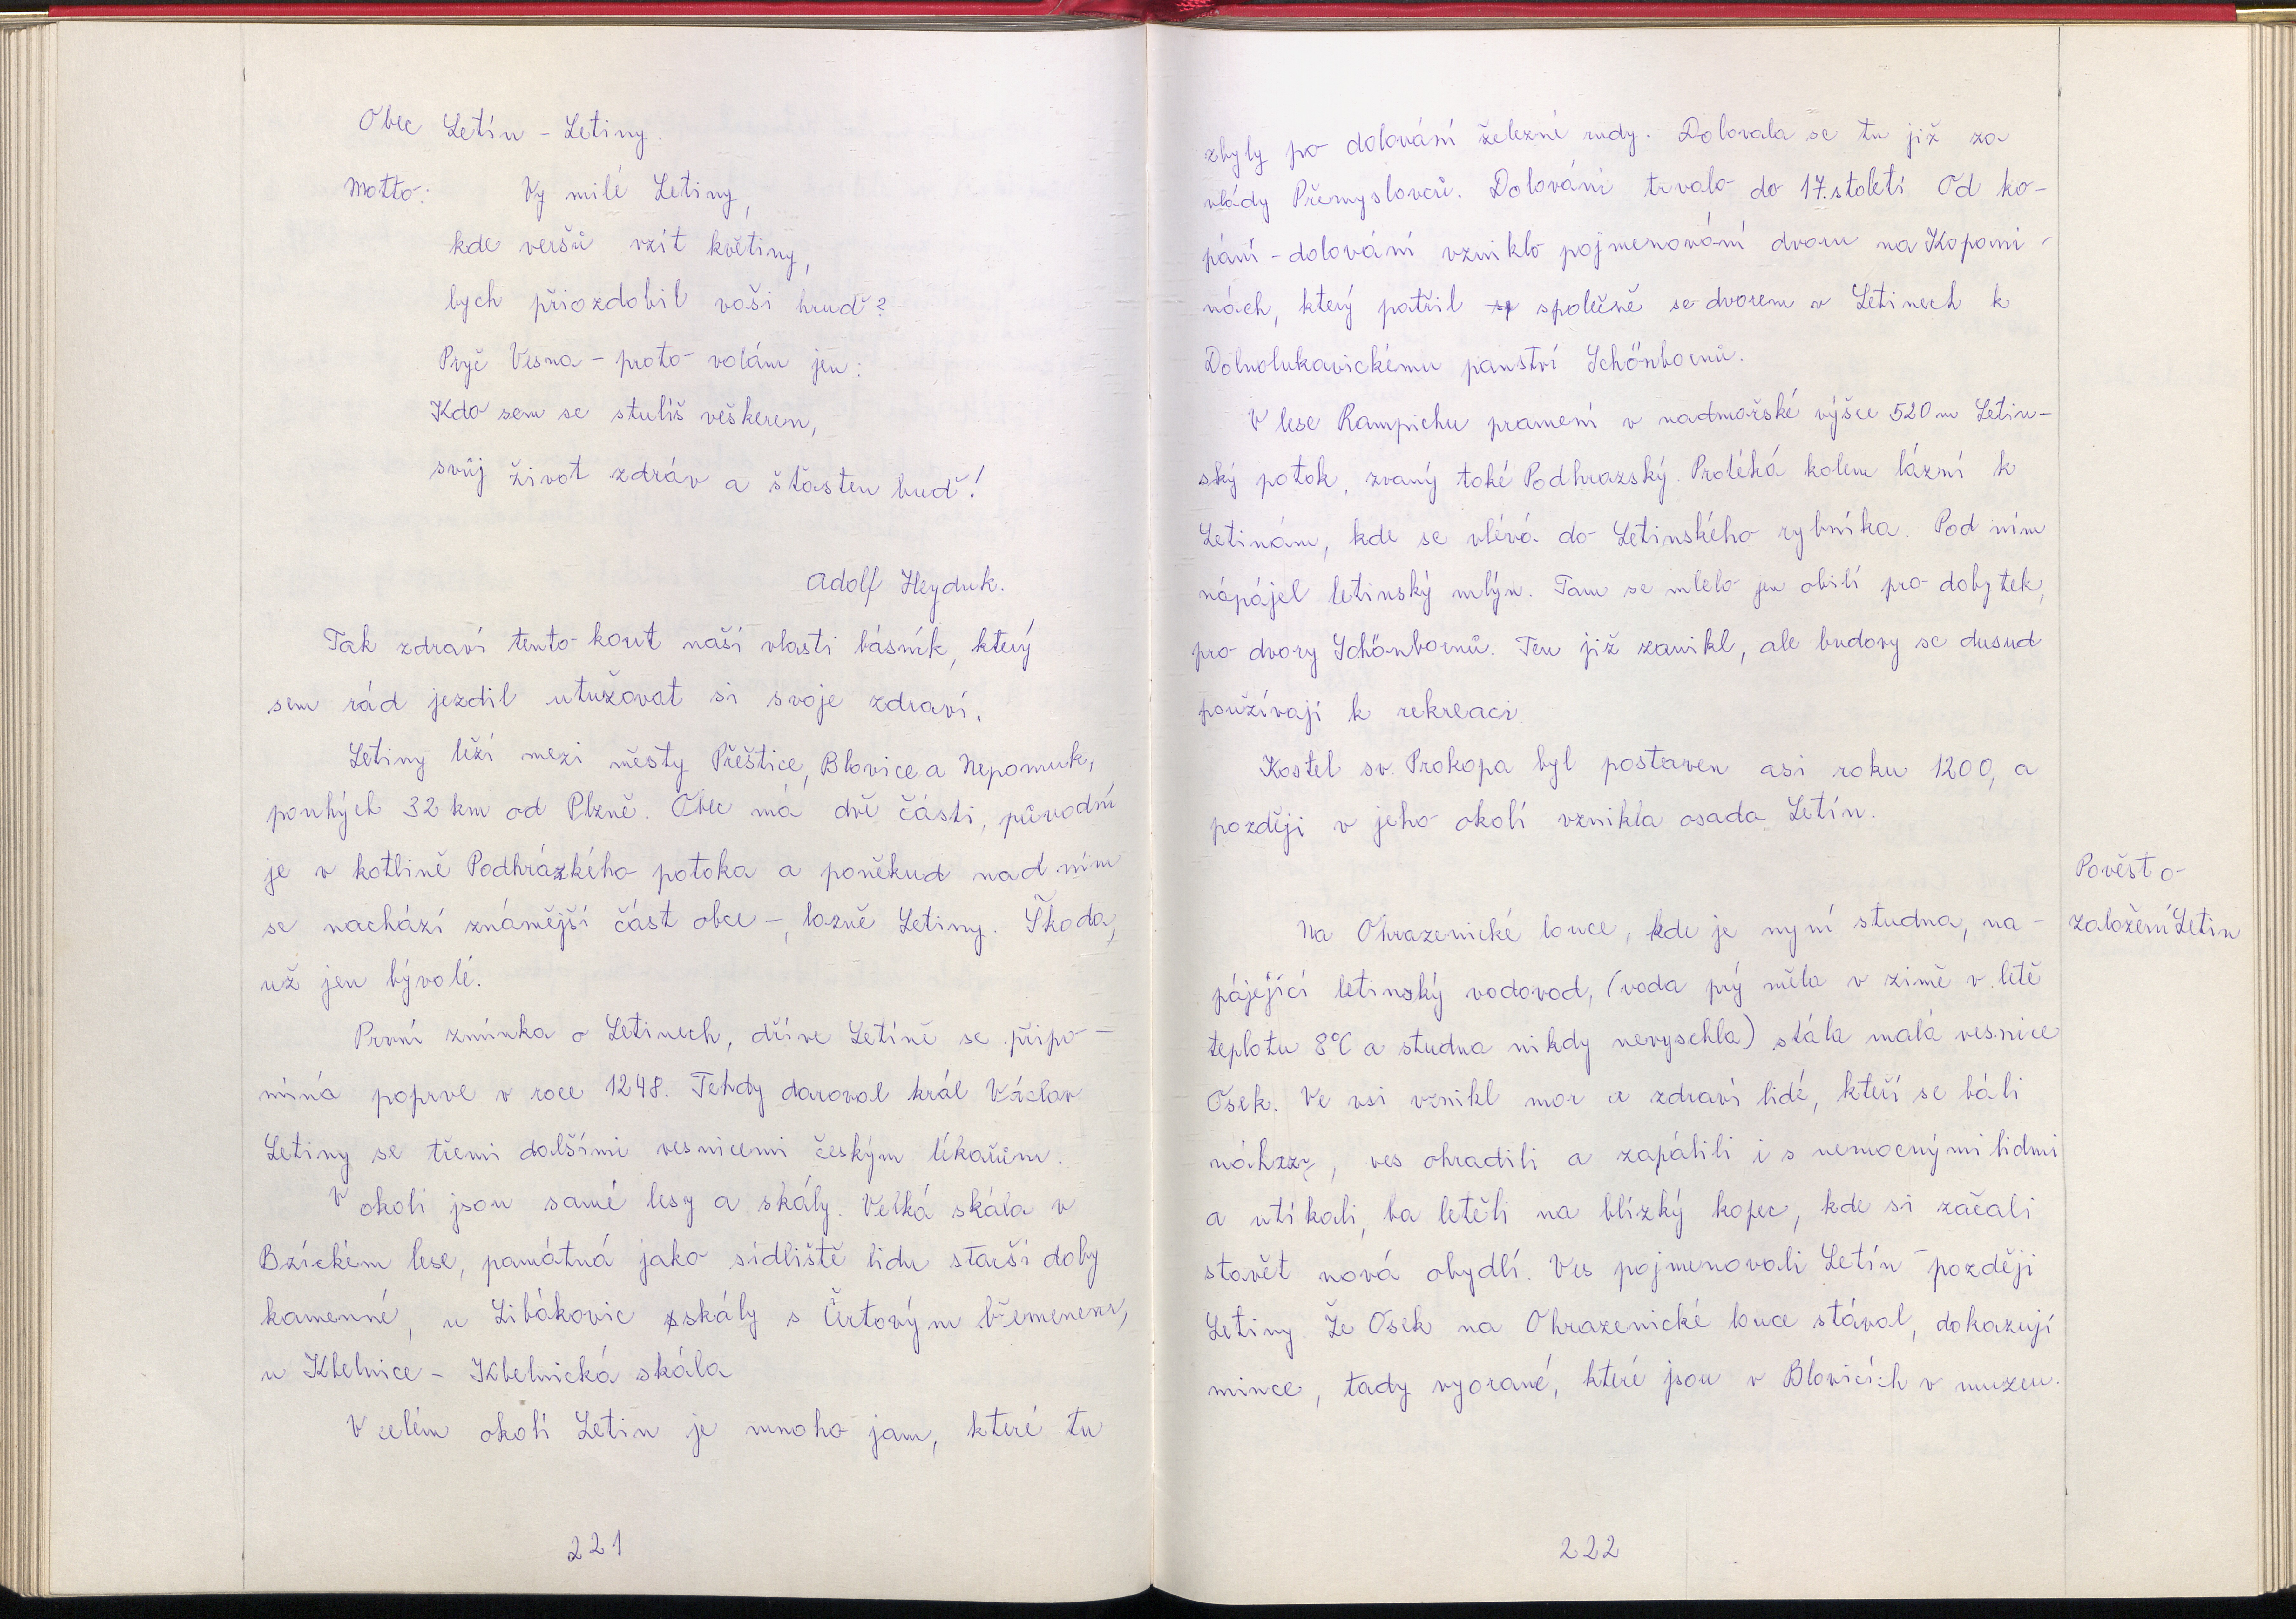 Obec Letín - Letiny.
Motto: Vy milé Letiny,
kde veršů vzít květiny,
bych přiozdobil vaši hruď?
Pryč Vesna - proto volám jen:
Kdo sem se stulíš veškeren,
svůj život zdráv a šťasten buď!
Adolf Heyduk.
Tak zdraví tento kout naší vlasti básník, který
sem rád jezdil utužovat si svoje zdraví.
Letiny leží mezi městy Přeštice, Blovice a Nepomuk,
pouhých 32 km od Plzně. Obec má dvě části, původní
je v kotlině Podhrázkého potoka a poněkud nad ním
se nachází známější část obce -, lázně Letiny. Škoda,
už jen bývalé.
První zmínka o Letinech, dříve Letíně se připo-
míná poprve v roce 1248. Tehdy daroval král Václav
Letiny se třemi dalšími vesnicemi českým lékařům.
V okolí jsou samé lesy a skály. Velká skála v
Bzíckém lese, památná jako sídliště lidu starší doby
kamenné, u Libákovic skály s Čertovým břemenem,
u Kbelnice - Kbelnická skála
V celém okolí Letin je mnoho jam, které tu
221
zbyly po dolování železné rudy. Dolovala se tu již za
vlády Přemyslovců. Dolování trvalo do 17. století Od ko-
pání - dolování vzniklo pojmenování dvora na Kopani-
nách, který patřil sp společně se dvorem v Letinech k
Dolnolukavickému panství Schönbornů.
V lese Rampichu pramení v nadmořské výšce 520 m Letin-
ský potok, zvaný také Podhrazský. Protéká kolem lázní k
Letinám, kde se vlévá do Letinského rybníka. Pod ním
nápájel letinský mlýn. Tam se mlelo jen obilí pro dobytek,
pro dvory Schönbornů. Ten již zanikl, ale budovy se dusud
používají k rekreaci
Kostel sv. Prokopa byl postaven asi roku 1200, a
později v jeho okolí vznikla osada Letín.
Pověst o
založení Letin
Na Ohrazenické louce, kde je nyní studna, na-
pájející letinský vodovod, (voda prý měla v zimě v letě
teplotu 8°C a studna nikdy nevyschla) stála malá vesnice
Osek. Ve vsi vznikl mor a zdraví lidé, kteří se báli
nákazy, ves ohradili a zapálili i s nemocnými lidmi
a utíkali, ba letěli na blízký kopec, kde si začali
stavět nová obydlí. Ves pojmenovali Letín - později
Letiny. Že Osek na Ohrazenické louce stával, dokazují
mince, tady vyorané, které jsou v Blovicích v muzeu.
222